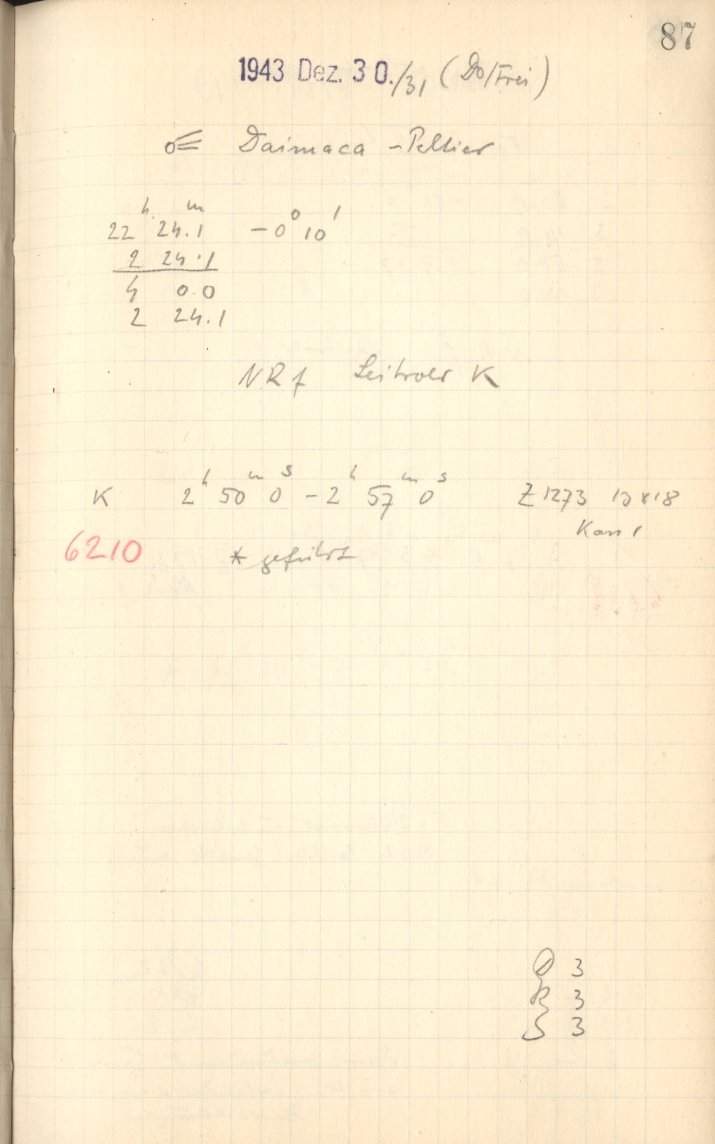 87
1943 Dez. 30./31 (Do/Frei)
☄ Daimaca - Peltier
22h 24.1m - 0° 10'
2 24.1
4 0.0
2 24.1
NRf Leitrohr K
K 2h 50m 0s - 2h 57m 0s Z 1273 13 x 18
Kass 1
6210 * geführt
D 3
R 3
S 3